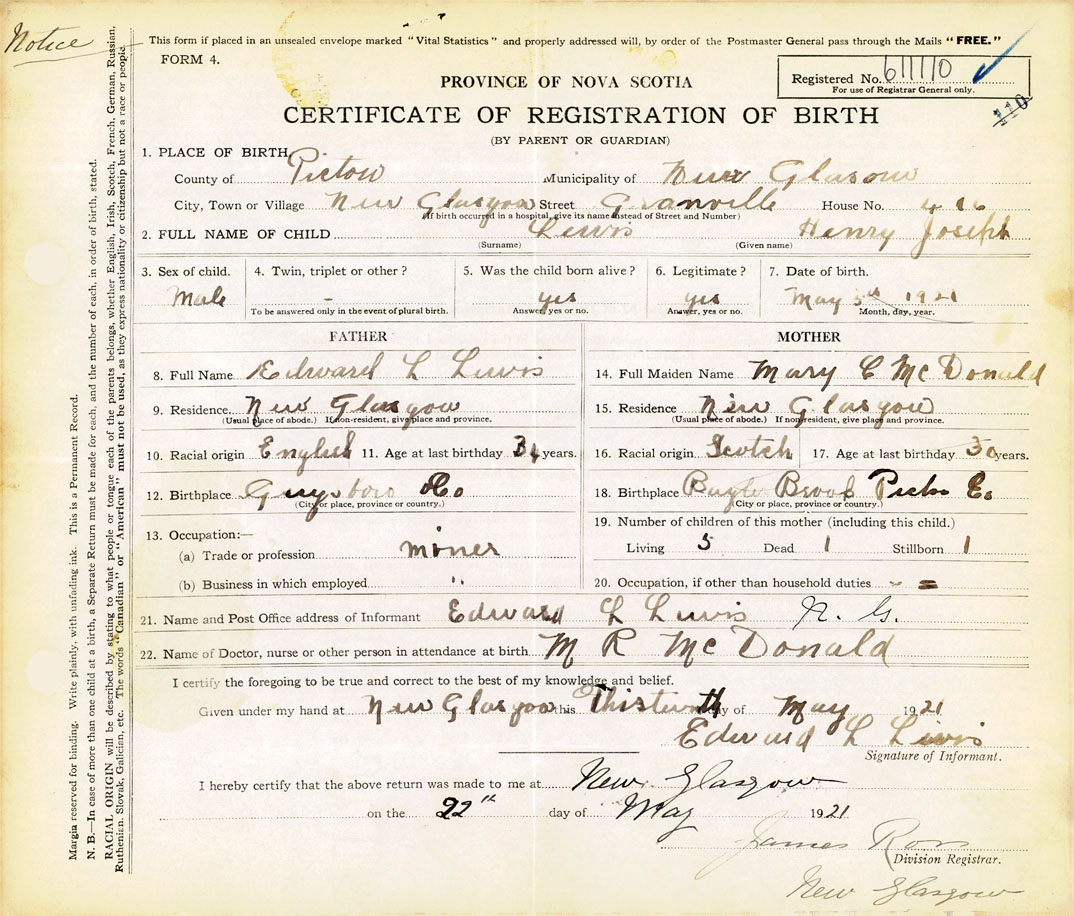 Notice
This form if placed in an unsealed envelope marked "Vital Statistics" and properly addressed will, by order of the Postmaster General pass through the Mails "FREE."
FORM 4.
Registered No. 611110
For use of Registrar General only.
110
PROVINCE OF NOVA SCOTIA
CERTIFICATE OF REGISTRATION OF BIRTH
(BY PARENT OR GUARDIAN)
1. PLACE OF BIRTH
County of Pictou Municipality of New Glasgow
City, Town or Village New Glasgow Street Granville House No. 416
(If birth occurred in a hospital, give its name instead of Street and Number)
2. FULL NAME OF CHILD Lewis Henry Joseph
(Surname) (Given name)
3. Sex of child. 4. Twin, triplet or other? 5. Was the child born alive? 6. Legitimate? 7. Date of birth.
Male - yes yes May 5th 1921
To be answered only in the event of plural birth. Answer, yes or no. Answer, yes or no. Month, day, year.
FATHER
8. Full Name Edward L Lewis
9. Residence New Glasgow
(Usual place of abode.) If non-resident, give place and province.
10. Racial origin English 11. Age at last birthday 34 years.
12. Birthplace Guysboro Co
(City or place, province or country.)
13. Occupation:—
(a) Trade or profession miner
(b) Business in which employed "
MOTHER
14. Full Maiden Name Mary C McDonald
15. Residence New Glasgow
(Usual place of abode.) If non-resident, give place and province.
16. Racial origin Scotch 17. Age at last birthday 30 years.
18. Birthplace Brook
(City or place, province or country.)
19. Number of children of this mother (including this child.)
Living 5 Dead 1 Stillborn 1
20. Occupation, if other than household duties - =
21. Name and Post Office address of Informant Edward L Lewis N. G.
22. Name of Doctor, nurse or other person in attendance at birth M R McDonald
I certify the foregoing to be true and correct to the best of my knowledge and belief.
Given under my hand at New Glasgow this day of May 1921
Edward L Lewis
Signature of Informant.
I hereby certify that the above return was made to me at New Glasgow
on the 22nd day of May 1921
James Ross
Division Registrar.
New Glasgow
Margin reserved for binding. Write plainly, with unfading ink. This is a Permanent Record.
N. B.—In case of more than one child at a birth, a Separate Return must be made for each, and the number of each, in order of birth, stated.
RACIAL ORIGIN will be described by stating to what people or tongue each of the parents belongs, whether English, Irish, Scotch, French, German, Russian,
Ruthenian, Slovak, Galician, etc. The words "Canadian" or "American" must not be used, as they express nationality or citizenship but not a race or people.